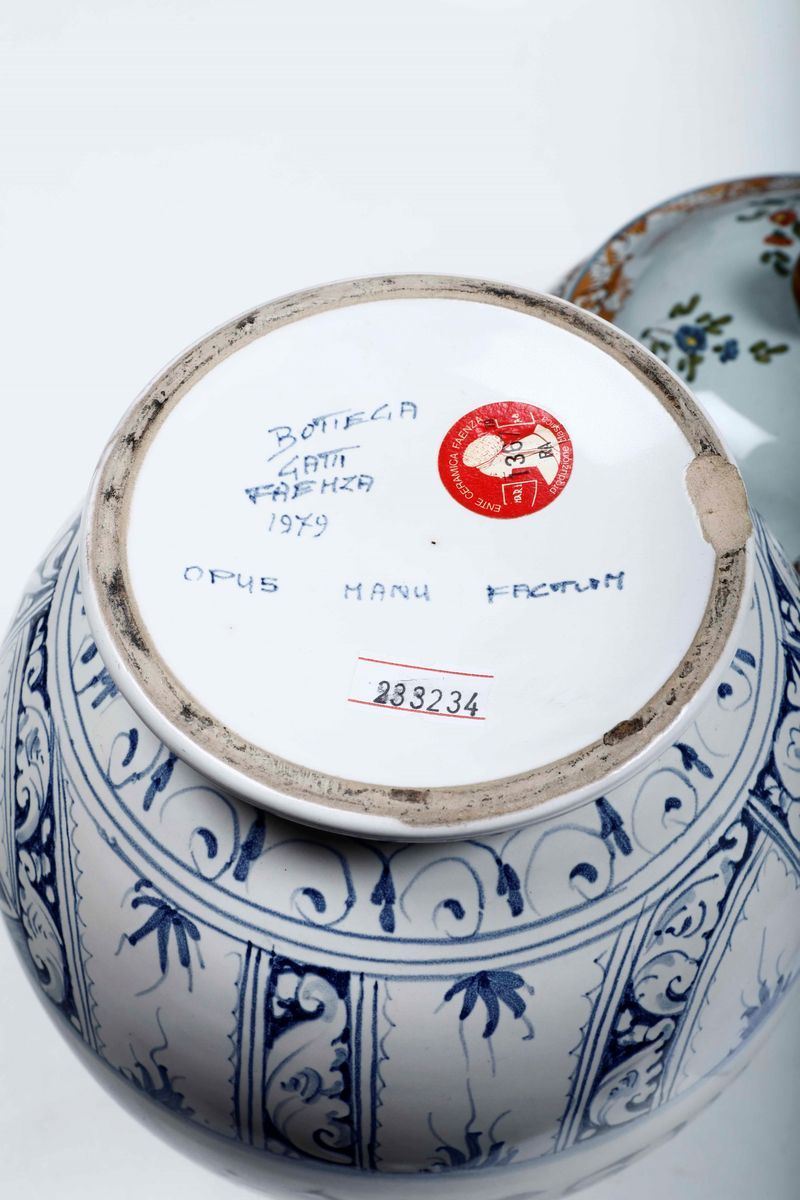 BOTTEGA
GATTI
FAENZA
1979
OPUS MANU FACTUM
ENTE CERAMICA FAENZA
produzione
136
RA
233234